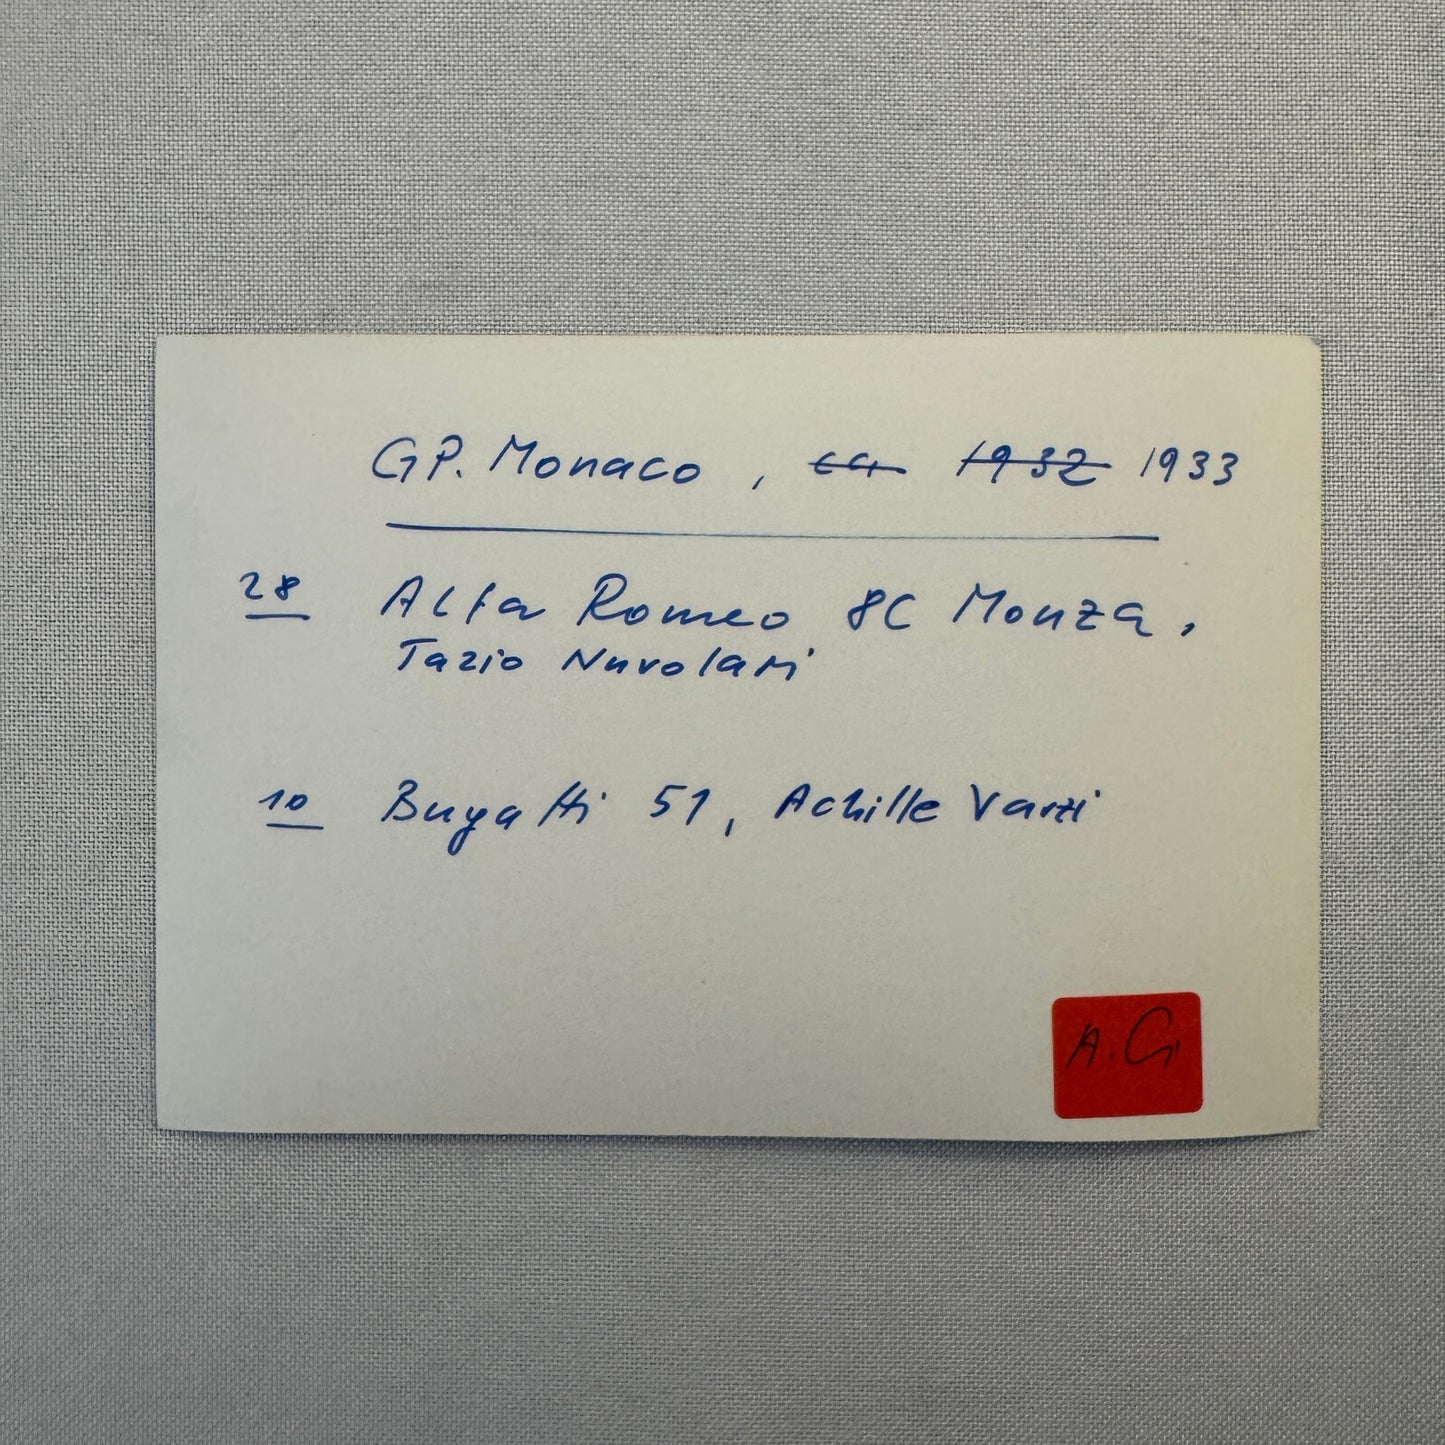 GP. Monaco, ca 1932 1933
28 Alfa Romeo 8C Monza,
Tazio Nuvolari
10 Bugatti 51, Achille Varzi
A. G.